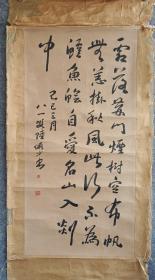 霜落荊門煙樹空布帆
無恙掛秋風此行不為
鱸魚鱠自愛名山入剡
中
己巳三月
八一叟陸儼少書